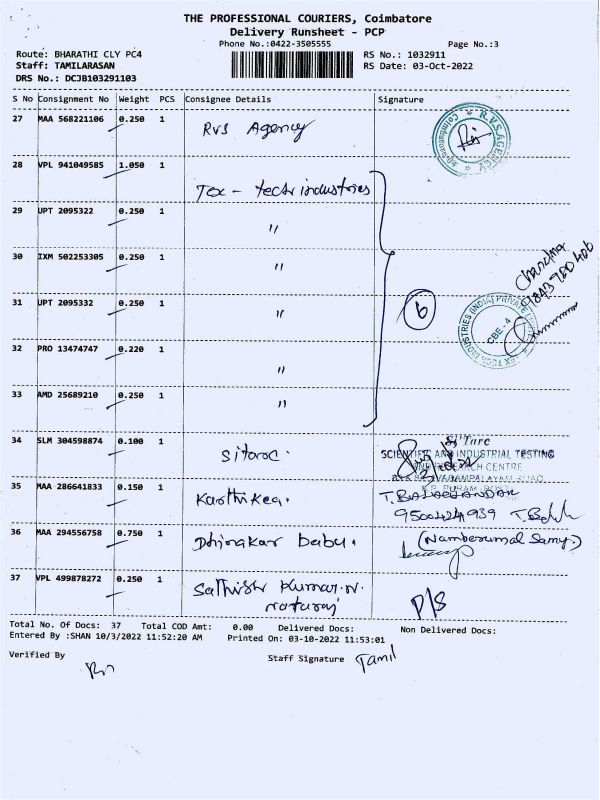 THE PROFESSIONAL COURIERS, Coimbatore
Delivery Runsheet - PCP
Phone No.:0422-3505555
Page No.:3
Route: BHARATHI CLY PC4
RS No.: 1032911
Staff: TAMILARASAN
RS Date: 03-Oct-2022
DRS No.: DCJB103291103
S No Consignment No Weight PCS Consignee Details Signature
27 MAA 568221106 0.250 1 RVS Agency
R.V.S. AGENCY
28 VPL 941049585 1.050 1 Tex - tech industries
29 UPT 2095322 0.250 1 "
30 IXM 502253305 0.250 1 "
Chandra
9843780406
31 UPT 2095332 0.250 1 " 6
CBE - 4
32 PRO 13474747 0.220 1 "
33 AMD 25689210 0.250 1 "
34 SLM 304598874 0.100 1 Sitarc.
Si'Tarc
SCIENTIFIC AND INDUSTRIAL TESTING
AND RESEARCH CENTRE
35 MAA 286641833 0.150 1 Karthikea. T. BALACHANDAR
9500424939
36 MAA 294556758 0.750 1 Dhinakar babu. (Namberumal Samy.)
37 VPL 499878272 0.250 1 Sathish Kumar.N.
nataraj D/S
Total No. Of Docs: 37 Total COD Amt: 0.00 Delivered Docs: Non Delivered Docs:
Entered By :SHAN 10/3/2022 11:52:20 AM Printed On: 03-10-2022 11:53:01
Verified By Staff Signature Tamil